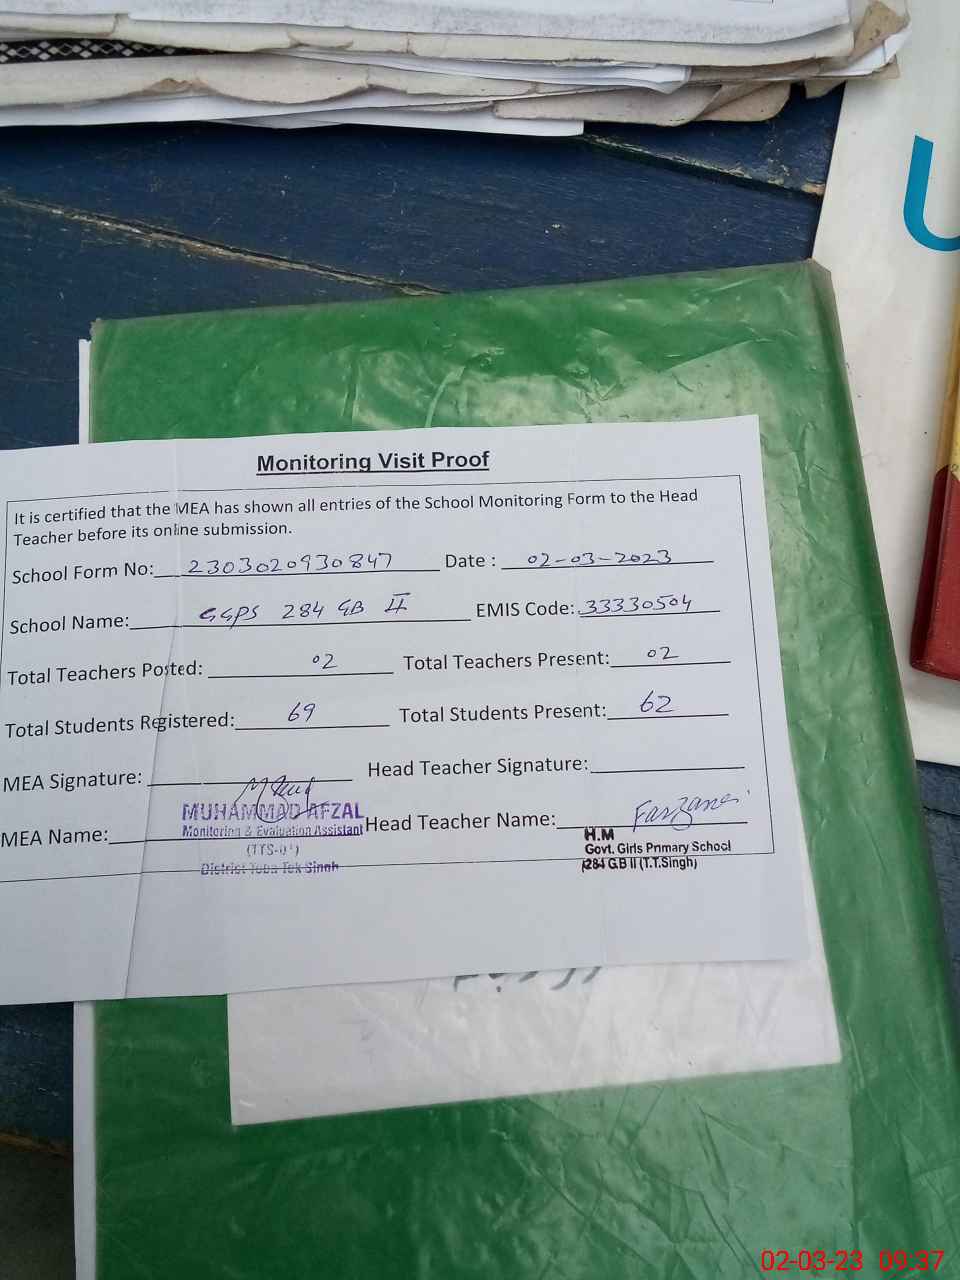 U
Monitoring Visit Proof
It is certified that the MEA has shown all entries of the School Monitoring Form to the Head
Teacher before its online submission.
School Form No: 2303020930847 Date : 02-03-2023
School Name: GGPS 284 GB II EMIS Code: 33330504
Total Teachers Posted: 02 Total Teachers Present: 02
Total Students Registered: 69 Total Students Present: 62
MEA Signature: Head Teacher Signature:
MEA Name: MUHAMMAD AFZAL Head Teacher Name: Farzana
Monitoring & Evaluation Assistant
District Toba Tek Singh
H.M
Govt. Girls Primary School
284 G.B II (T.T.Singh)
02-03-23 09.37